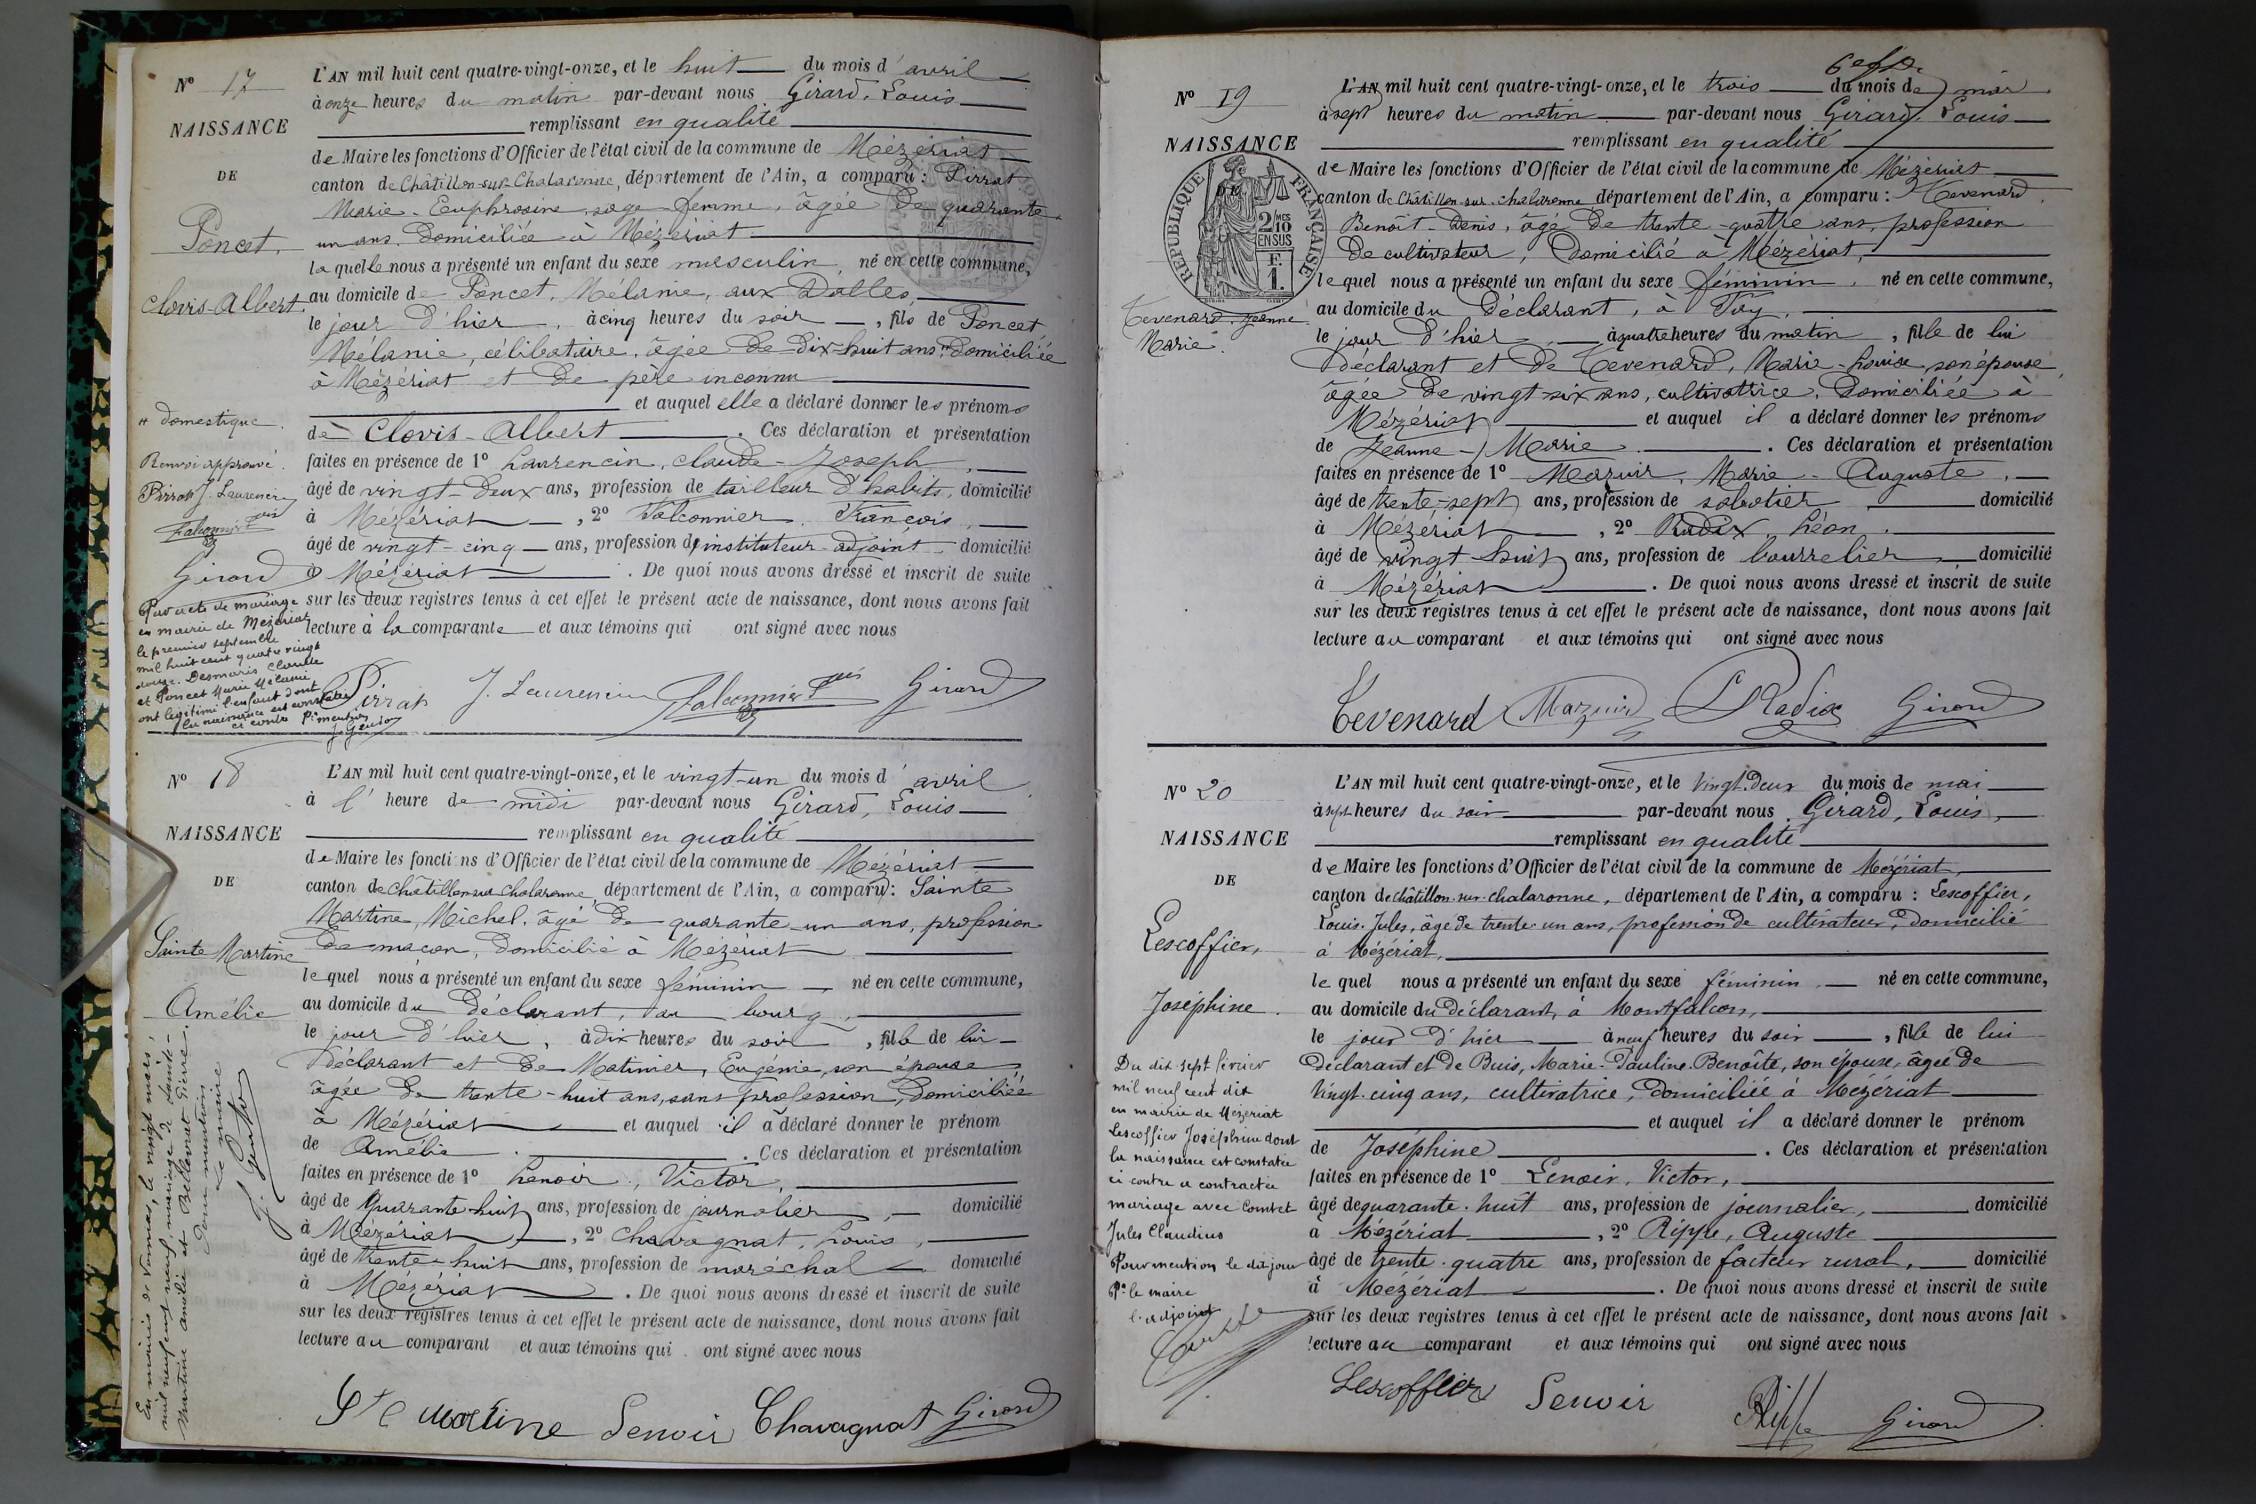 N° 17
NAISSANCE
DE
Poncet,
Clovis-Albert.
L'AN mil huit cent quatre-vingt-onze, et le huit du mois d'avril
à onze heures du matin par-devant nous Girard, Louis
remplissant en qualité
de Maire les fonctions d'Officier de l'état civil de la commune de Mézériat
canton de Châtillon-sur-Chalaronne, département de l'Ain, a comparu : Pirrat
Marie-Euphrosine, sage-femme, âgée de quarante-
un ans, domiciliée à Mézériat
laquelle nous a présenté un enfant du sexe masculin, né en cette commune,
au domicile de Poncet, Mélanie, aux Dalles,
le jour d'hier, à cinq heures du soir, fils de Poncet
Mélanie, célibataire, âgée de dix-huit ans " domiciliée
à Mézériat et de père inconnu
et auquel elle a déclaré donner les prénoms
de Clovis-Albert. Ces déclaration et présentation
faites en présence de 1° Laurencin, Claude-Joseph,
âgé de vingt-deux ans, profession de tailleur d'habits, domicilié
à Mézériat, 2° Falconnier, François,
âgé de vingt-cinq ans, profession d'instituteur-adjoint domicilié
à Mézériat. De quoi nous avons dressé et inscrit de suite
sur les deux registres tenus à cet effet le présent acte de naissance, dont nous avons fait
lecture à la comparante et aux témoins qui ont signé avec nous
" domestique.
Renvoi approuvé.
Pirrat J. Laurencin
Falconnier
Girard
Par acte de mariage
en mairie de Mézériat
le premier septembre
mil huit cent quatre vingt
douze. Desmaris Claude
et Poncet Marie Mélanie
ont légitimé l'enfant dont
la naissance est constatée
ci contre Pr mention
Pirrat J. Laurencin Falconnier Girard
N° 18
NAISSANCE
DE
Sainte Martine
Amélie
L'AN mil huit cent quatre-vingt-onze, et le vingt-un du mois d'avril
à l'heure de midi par-devant nous Girard, Louis
remplissant en qualité
de Maire les fonctions d'Officier de l'état civil de la commune de Mézériat
canton de Châtillon-sur-Chalaronne, département de l'Ain, a comparu : Sainte
Martine, Michel, âgé de quarante-un ans, profession
de maçon, domicilié à Mézériat
lequel nous a présenté un enfant du sexe féminin, né en cette commune,
au domicile du déclarant, au bourg,
le jour d'hier, à dix heures du soir, fille de lui
déclarant et de Matinier, Eugénie, son épouse
âgée de trente-huit ans, sans profession, domiciliée
à Mézériat et auquel il a déclaré donner le prénom
de Amélie. Ces déclaration et présentation
faites en présence de 1° Lenoir, Victor,
âgé de quarante-huit ans, profession de journalier, domicilié
à Mézériat, 2° Chavagnat, Louis,
âgé de trente-huit ans, profession de maréchal domicilié
à Mézériat. De quoi nous avons dressé et inscrit de suite
sur les deux registres tenus à cet effet le présent acte de naissance, dont nous avons fait
lecture au comparant et aux témoins qui ont signé avec nous
En mairie de Vonnas, le vingt mars,
mil neuf cent neuf, mariage de Sainte-
Martine Amélie et Bellevrat Pierre.
Dont mention
Le maire
Ste Martine Lenoir Chavagnat Girard
N° 19
NAISSANCE
DE
RÉPUBLIQUE FRANÇAISE
2/10 MES EN SUS
F. 1.
Tevenard Jeanne
Marie.
L'AN mil huit cent quatre-vingt-onze, et le trois du mois de mai
à sept heures du matin par-devant nous Girard, Louis
remplissant en qualité
de Maire les fonctions d'Officier de l'état civil de la commune de Mézériat
canton de Châtillon-sur-Chalaronne département de l'Ain, a comparu : Tevenard
Benoît-Denis, âgé de trente-quatre ans, profession
de cultivateur, domicilié à Mézériat,
lequel nous a présenté un enfant du sexe féminin, né en cette commune,
au domicile du déclarant, à Fay,
le jour d'hier, à quatre heures du matin, fille de lui
déclarant et de Tevenard, Marie-Louise son épouse,
âgée de vingt-six ans, cultivatrice, domiciliée à
Mézériat et auquel il a déclaré donner les prénoms
de Jeanne-Marie. Ces déclaration et présentation
faites en présence de 1° Mazuir, Marie-Auguste,
âgé de trente-sept ans, profession de sabotier domicilié
à Mézériat, 2° Radix, Léon.
âgé de vingt-huit ans, profession de bourrelier, domicilié
à Mézériat. De quoi nous avons dressé et inscrit de suite
sur les deux registres tenus à cet effet le présent acte de naissance, dont nous avons fait
lecture au comparant et aux témoins qui ont signé avec nous
Tevenard Mazuir L Radix Girard
N° 20
NAISSANCE
DE
Lescoffier,
Joséphine.
L'AN mil huit cent quatre-vingt-onze, et le vingt-deux du mois de mai
à sept heures du soir par-devant nous Girard, Louis,
remplissant en qualité
de Maire les fonctions d'Officier de l'état civil de la commune de Mézériat,
canton de Châtillon-sur-Chalaronne, département de l'Ain, a comparu : Lescoffier,
Louis-Jules, âgé de trente-un ans, profession de cultivateur, domicilié
à Mézériat,
lequel nous a présenté un enfant du sexe féminin, né en cette commune,
au domicile du déclarant, à Montfalcon,
le jour d'hier à neuf heures du soir, fille de lui
déclarant et de Buis, Marie-Pauline-Benoîte, son épouse, âgée de
vingt-cinq ans, cultivatrice, domiciliée à Mézériat
et auquel il a déclaré donner le prénom
de Joséphine. Ces déclaration et présentation
faites en présence de 1° Lenoir, Victor,
âgé de quarante-huit ans, profession de journalier, domicilié
à Mézériat, 2° Rippe, Auguste
âgé de trente-quatre ans, profession de facteur rural, domicilié
à Mézériat. De quoi nous avons dressé et inscrit de suite
sur les deux registres tenus à cet effet le présent acte de naissance, dont nous avons fait
lecture au comparant et aux témoins qui ont signé avec nous
Du dix sept février
mil neuf cent dix
en mairie de Mézériat
Lescoffier Joséphine dont
la naissance est constatée
ci contre a contracté
mariage avec Comtet
Jules Claudius
Pour mention le dit jour
Pr le maire
l'adjoint
Lescoffier Lenoir Rippe Girard